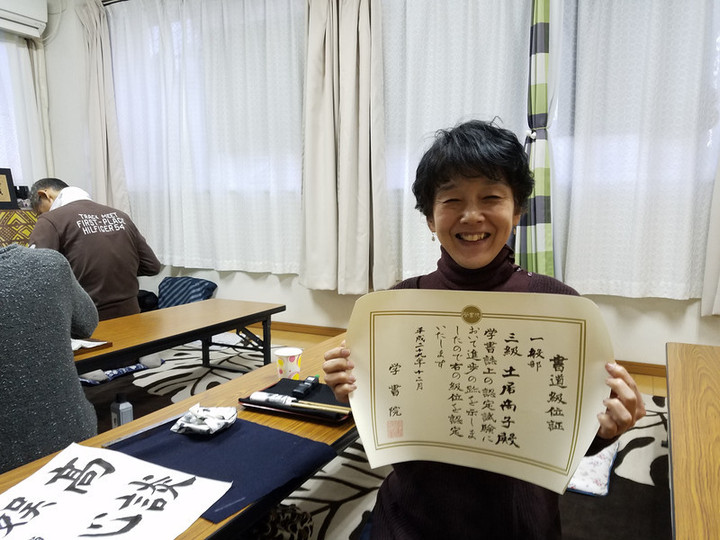 書道級位証
一般部
三級 土尾 殿
学書誌上の認定試験に
おいて進歩の跡を示しま
したので右の級位を認定
いたします
平成二九年十二月
学書院
TRACK MEET
FIRST-PLACE
HILFIGER 54
高談
娯心